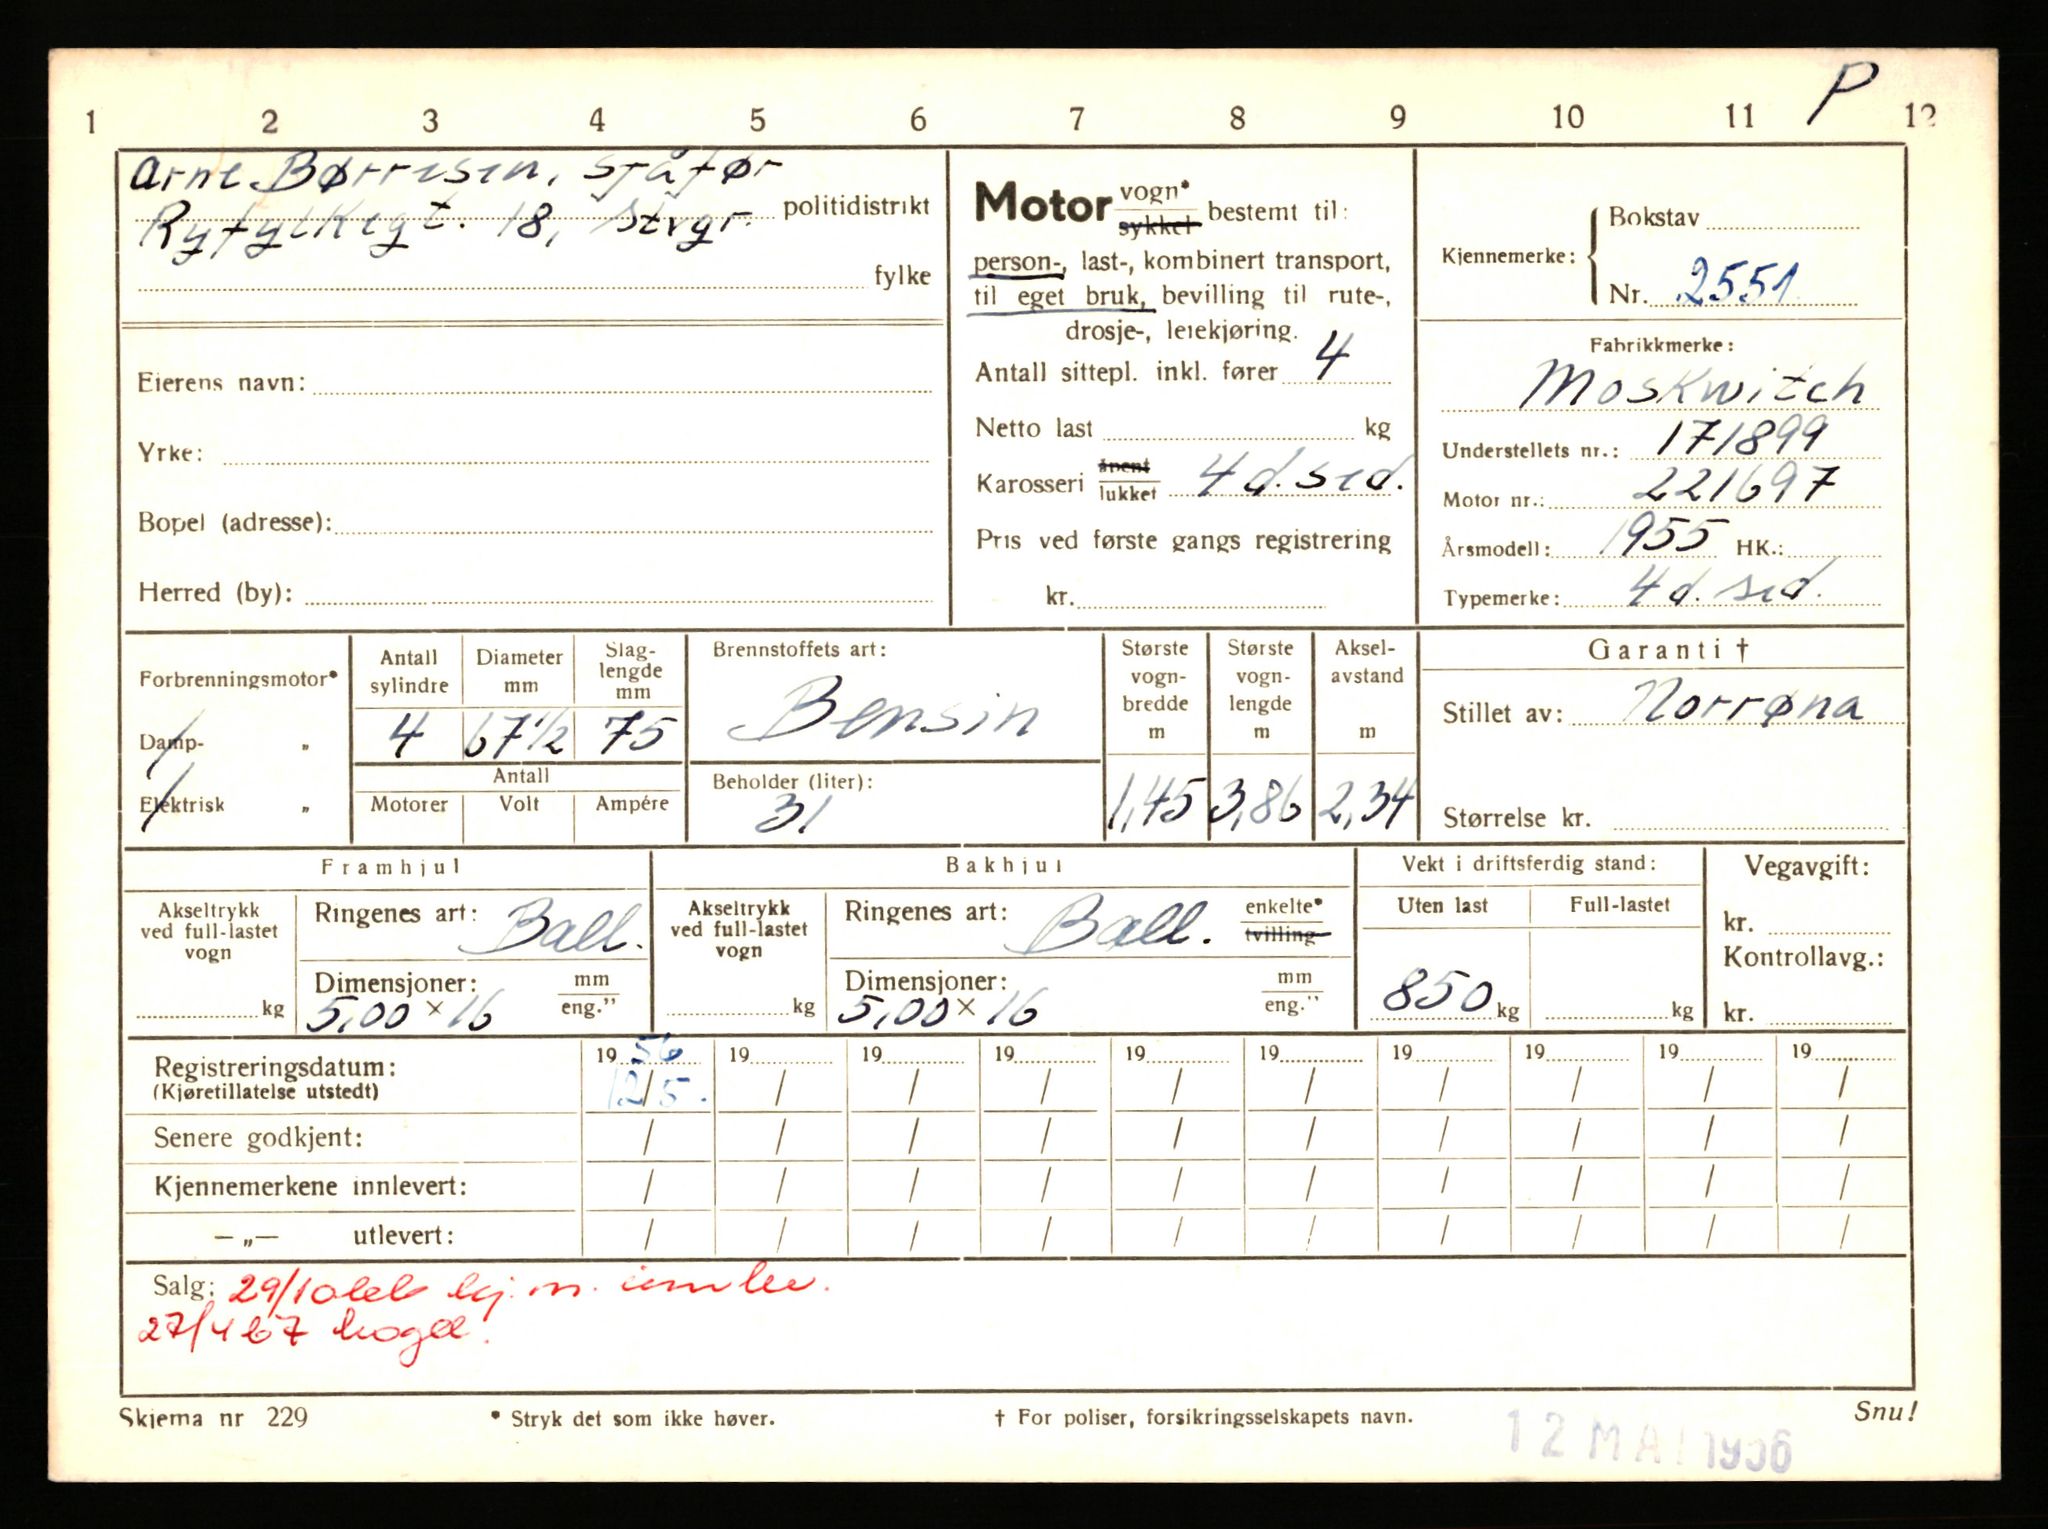 P
1 2 3 4 5 6 7 8 9 10 11 12
Arne Børresen, sjåfør
politidistrikt
Ryfylkegt. 18, Stvgr.
fylke
Eierens navn:
Yrke:
Bopel (adresse):
Herred (by):
Motor vogn* sykkel bestemt til:
person-, last-, kombinert transport,
til eget bruk, bevilling til rute-,
drosje-, leiekjøring.
Antall sittepl. inkl. fører 4
Netto last kg
Karosseri åpent lukket 4 d. sed.
Pris ved første gangs registrering
kr.
Kjennemerke: Bokstav
Nr. 2551
Fabrikkmerke:
Moskwitch
Understellets nr.: 171899
Motor nr.: 221697
Årsmodell: 1955 HK.:
Typemerke: 4 d. sed.
Forbrenningsmotor*
Damp- „
Elektrisk „
Antall sylindre Diameter mm Slag-lengde mm
4 67 1/2 75
Antall
Motorer Volt Ampére
Brennstoffets art:
Bensin
Beholder (liter):
31
Største vogn-bredde m Største vogn-lengde m Aksel-avstand m
1,45 3,86 2,34
Garanti †
Stillet av: Norrøna
Størrelse kr.
Framhjul
Akseltrykk ved full-lastet vogn
kg
Ringenes art: Ball.
Dimensjoner: mm eng."
5,00 × 16
Bakhjul
Akseltrykk ved full-lastet vogn
kg
Ringenes art: Ball. enkelte* tvilling
Dimensjoner: mm eng."
5,00 × 16
Vekt i driftsferdig stand:
Uten last Full-lastet
850 kg kg
Vegavgift:
kr.
Kontrollavg.:
kr.
Registreringsdatum: 19 56 19 19 19 19 19 19 19 19 19
(Kjøretillatelse utstedt) 12/5. / / / / / / / / /
Senere godkjent: / / / / / / / / / /
Kjennemerkene innlevert: / / / / / / / / / /
—„— utlevert: / / / / / / / / / /
Salg: 29/10 kj. m. innlev.
27/4 67
Skjema nr 229
* Stryk det som ikke høver.
† For poliser, forsikringsselskapets navn.
Snu!
12 MAI 1956